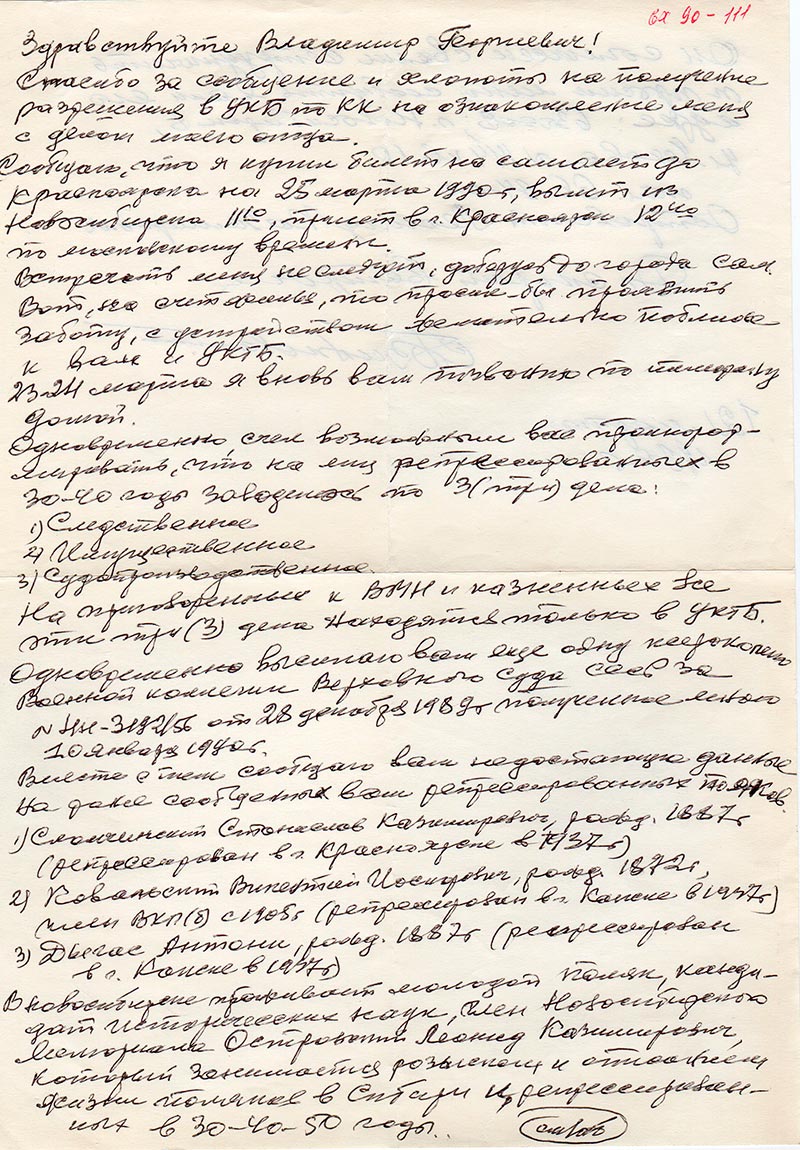 вх 90-111
Здравствуйте Владимир Георгиевич!
Спасибо за сообщение и хлопоты на получение
разрешения в УКГБ по КК на ознакомление меня
с делом моего отца.
Сообщаю, что я купил билет на самолет до
Красноярска на 25 марта 1990г, вылет из
Новосибирска 11 10, прилет в г. Красноярск 12 40
по московскому времени.
Встречать меня не следует, доберусь до города сам.
Вот, на счет жилья, то просил-бы проявить
заботу, с устройством желательно поближе
к вам и УКГБ.
23-24 марта я вновь вам позвоню по телефону
домой.
Одновременно счел возможным вас проинфор-
мировать, что на лиц репрессированных в
30-40 годы заводилось по 3(три) дела:
1) Следственное
2) Имущественное
3) Судопроизводственное.
На приговоренных к ВМН и казненных все
эти три (3) дела находятся только в УКГБ.
Одновременно высылаю вам еще одну
Военной Верховного Суда СССР за
от 28 декабря 1989г полученное мною
10 января 1990г.
Вместе с тем сообщаю вам недостающие данные
на ранее сообщенных вам репрессированных поляков.
1) Станислав Казимирович, рожд. 1887г
(репрессирован в г. Красноярске в 1937г)
2) Ковальский Викентий Иосифович, рожд. 1872г,
член ВКП(б) с 1905г (репрессирован в г. Канске в 1937г)
3) Дыгас Антони, рожд. 1887г (репрессирован
в г. Канске в 1937г)
В Новосибирске проживает молодой поляк, канди-
дат исторических наук, член Новосибирского
Мемориала Островский Леонид Казимирович,
который занимается розыском и
жизни поляков в Сибири и репрессирован-
ных в 30-40-50 годы..
см/об